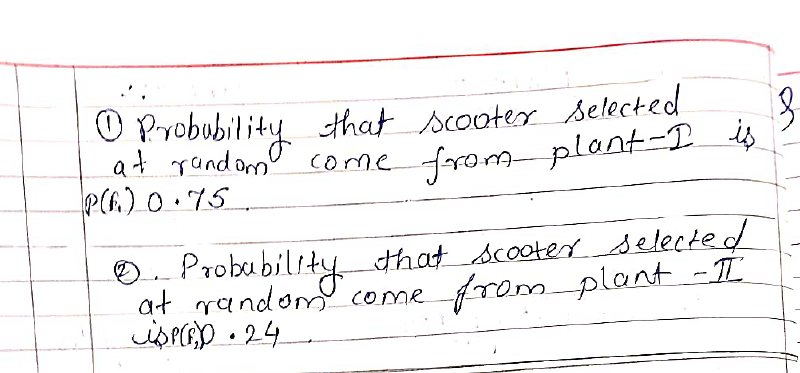 ∴
① Probability that scooter selected
at random come from plant-I is
P(F₁) 0.75.
②. Probability that scooter selected
at random come from plant-II
is P(F₂) 0.24.